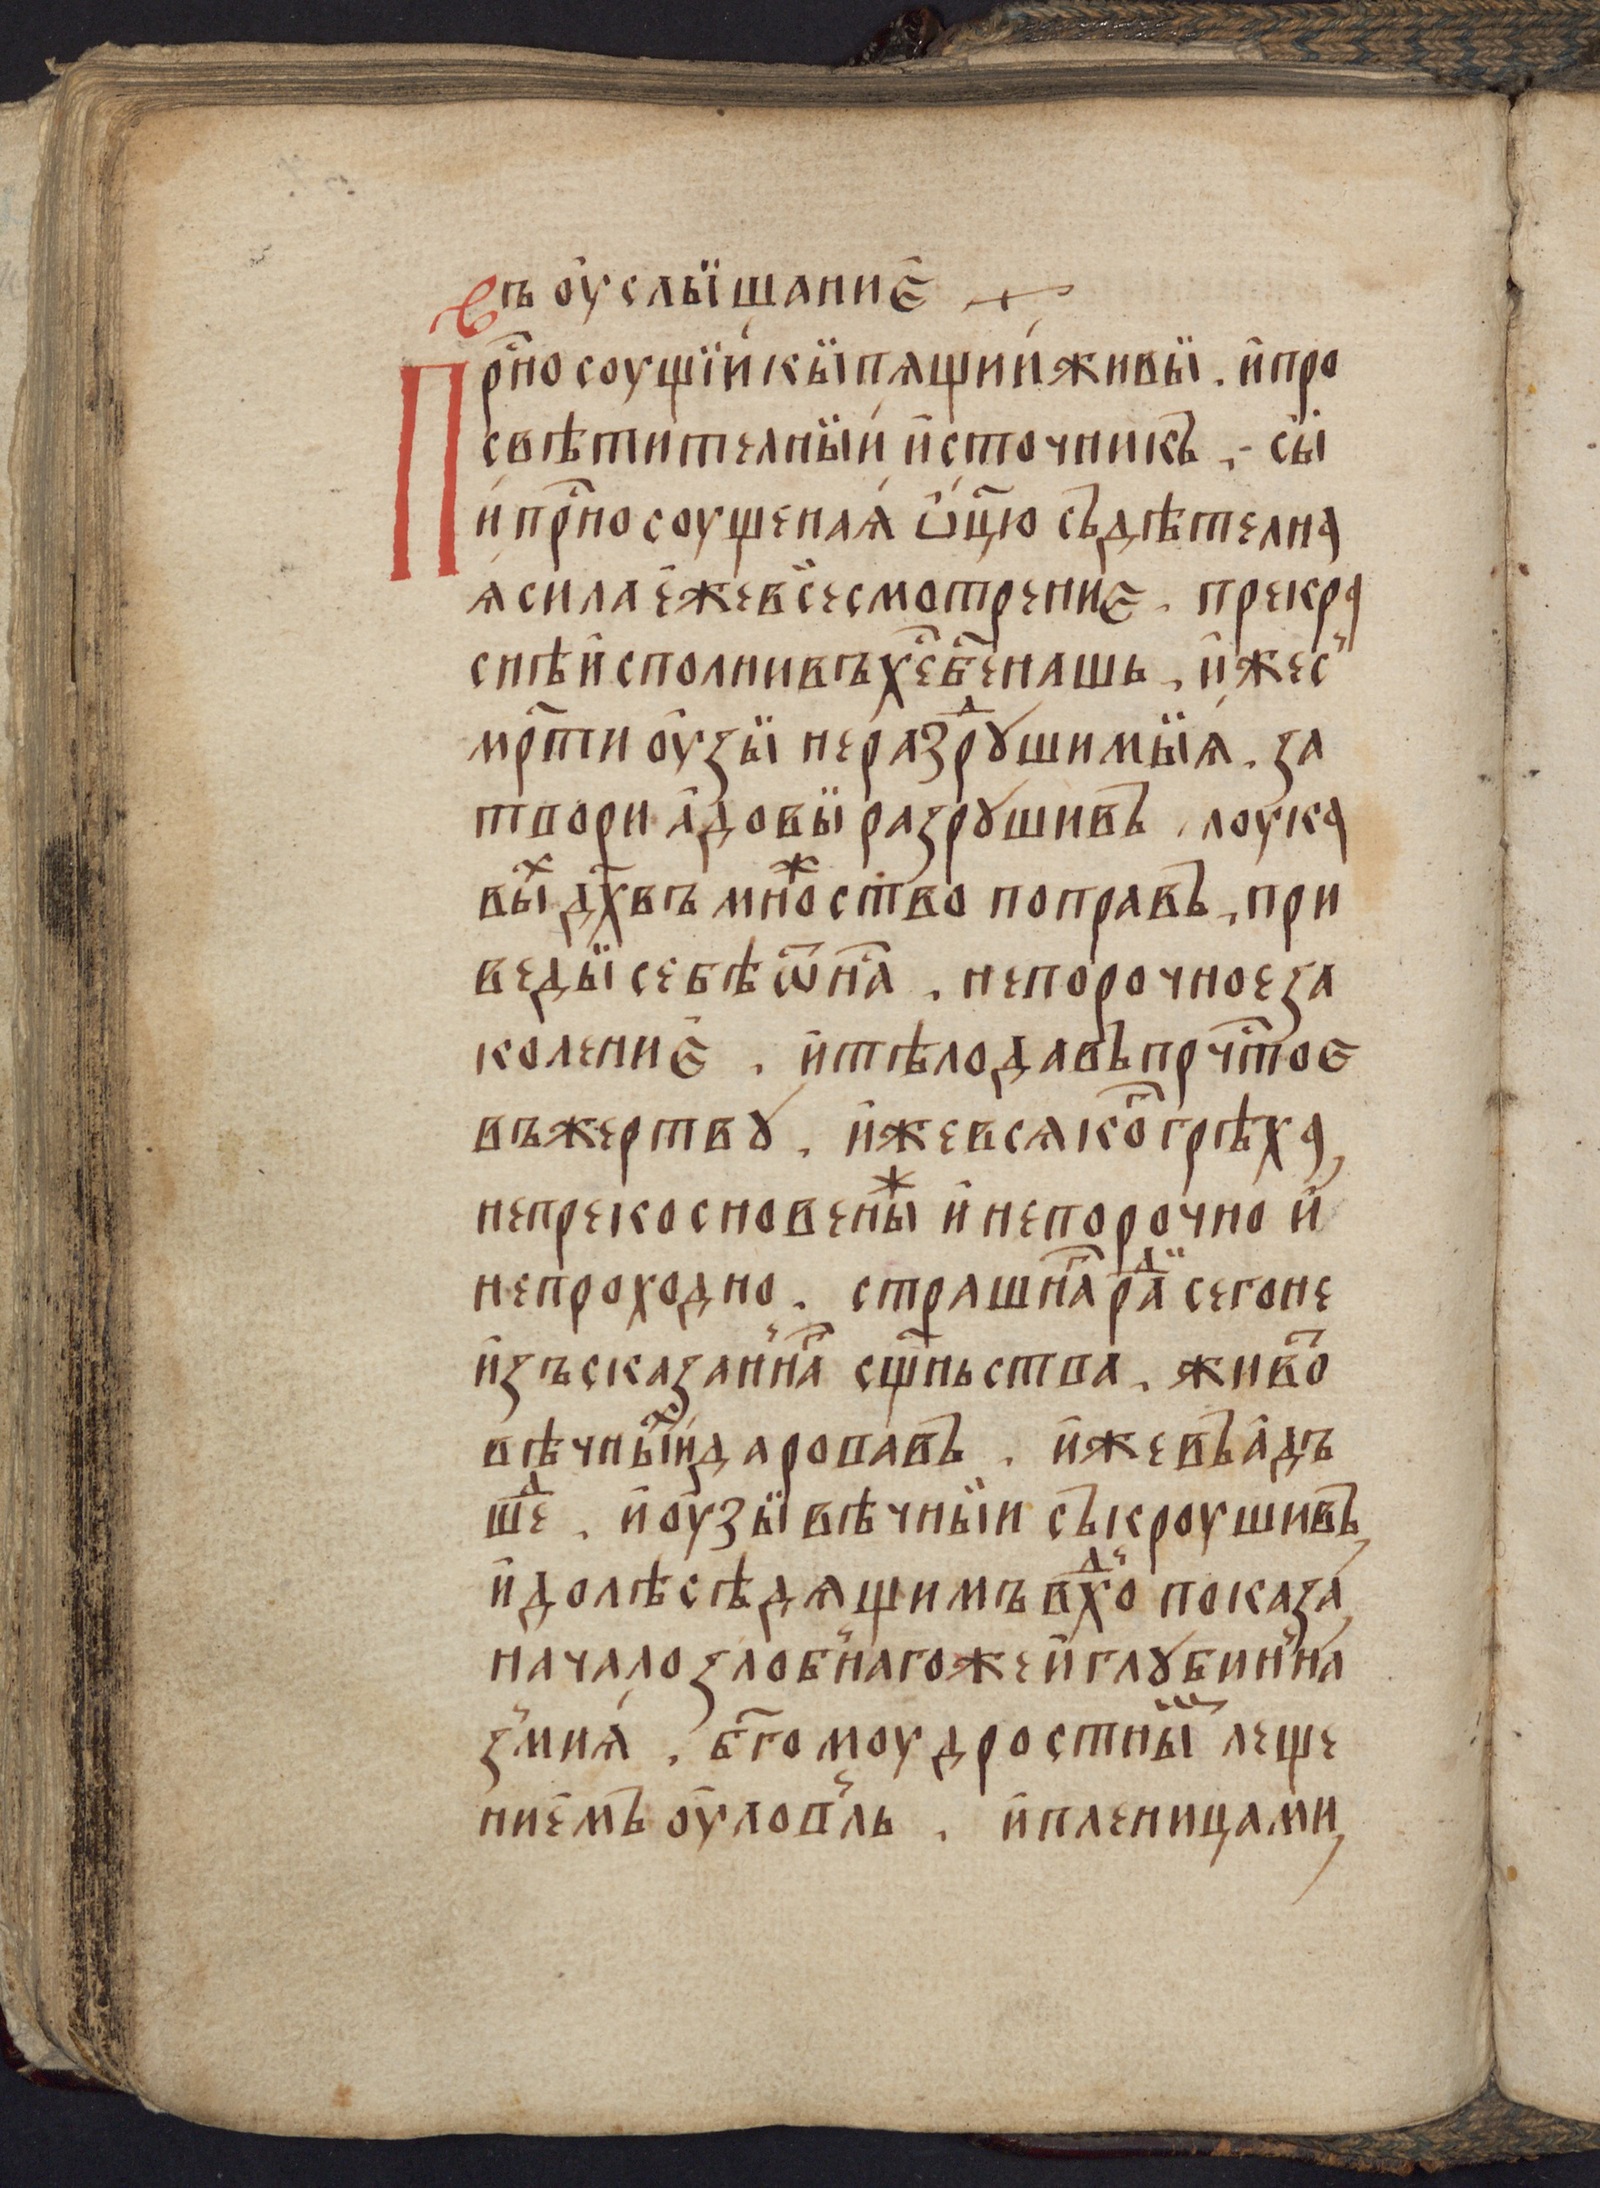 въ ѹслыщание
Прⷭ҇но соущїй кыпѧщий живы . и про
свѣтителный источникъ . сы
и прⷭ҇носоущенаѧ ѿц҃ю съдѣтелна
ѧ сила ежевсесмотрение . прекра
снѣ исполнивъ хе҃ бе҃ нашь . ижес
мр҃ти ѹзы неразⷣрꙋшимыѧ . за
твори адовы разрꙋшивъ . лоука
выⷯ дх҃въ мноⷤство поправъ . при
веды себѣ ѡ наⷭ . непорочное за
коление . и тѣло давъ прчⷭ҇тое
въ жертвꙋ . ижевсѧкоⷢ грѣха
непрекосновеныⷤ и непорочно и
непроходно . страшнаⷢ раⷣ сего не
изъсказаннаⷢ сщ҃ньства . живоⷢ
вѣчныⷯи даровавъ . ижевъ адъ
шеⷣ . и ѹзы вѣчныи съкроушивъ
и долѣ сѣдѧщимъ вхоⷣ показа
начало злобнагоже и глꙋбинна
змиѧ . бг҃омоудростныⷨ леще
ниемъ ѹловль . и пленицами